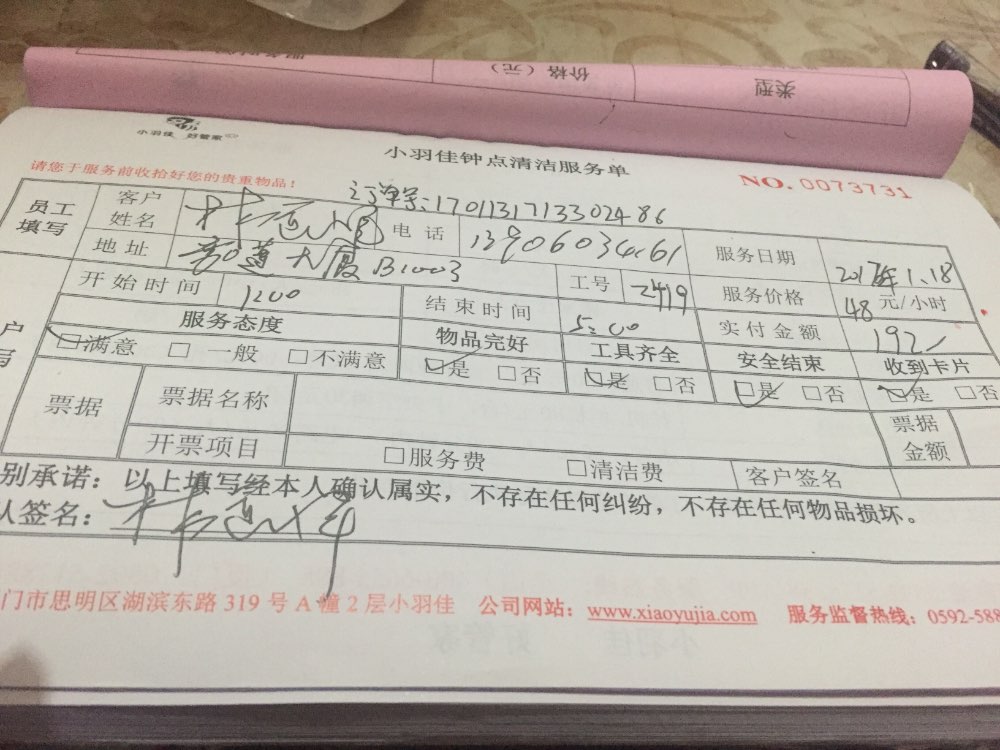 类型
价格（元）
小羽佳 好管家
小羽佳钟点清洁服务单
请您于服务前收拾好您的贵重物品！
NO. 0073731
订单号:17011317133024 86
员工填写
客户姓名
电话
服务日期
2017年1.18
地址
大厦B1003
工号
2419
服务价格
48元/小时
开始时间
1200
结束时间
5:00
实付金额
192
服务态度
物品完好
工具齐全
安全结束
收到卡片
□满意 □一般 □不满意
□是 □否
□是 □否
□是 □否
□是 □否
票据
票据名称
票据金额
开票项目
□服务费 □清洁费
客户签名
别承诺：以上填写经本人确认属实，不存在任何纠纷，不存在任何物品损坏。
签名：
门市思明区湖滨东路 319 号 A 幢 2 层小羽佳 公司网站：www.xiaoyujia.com 服务监督热线：0592-588